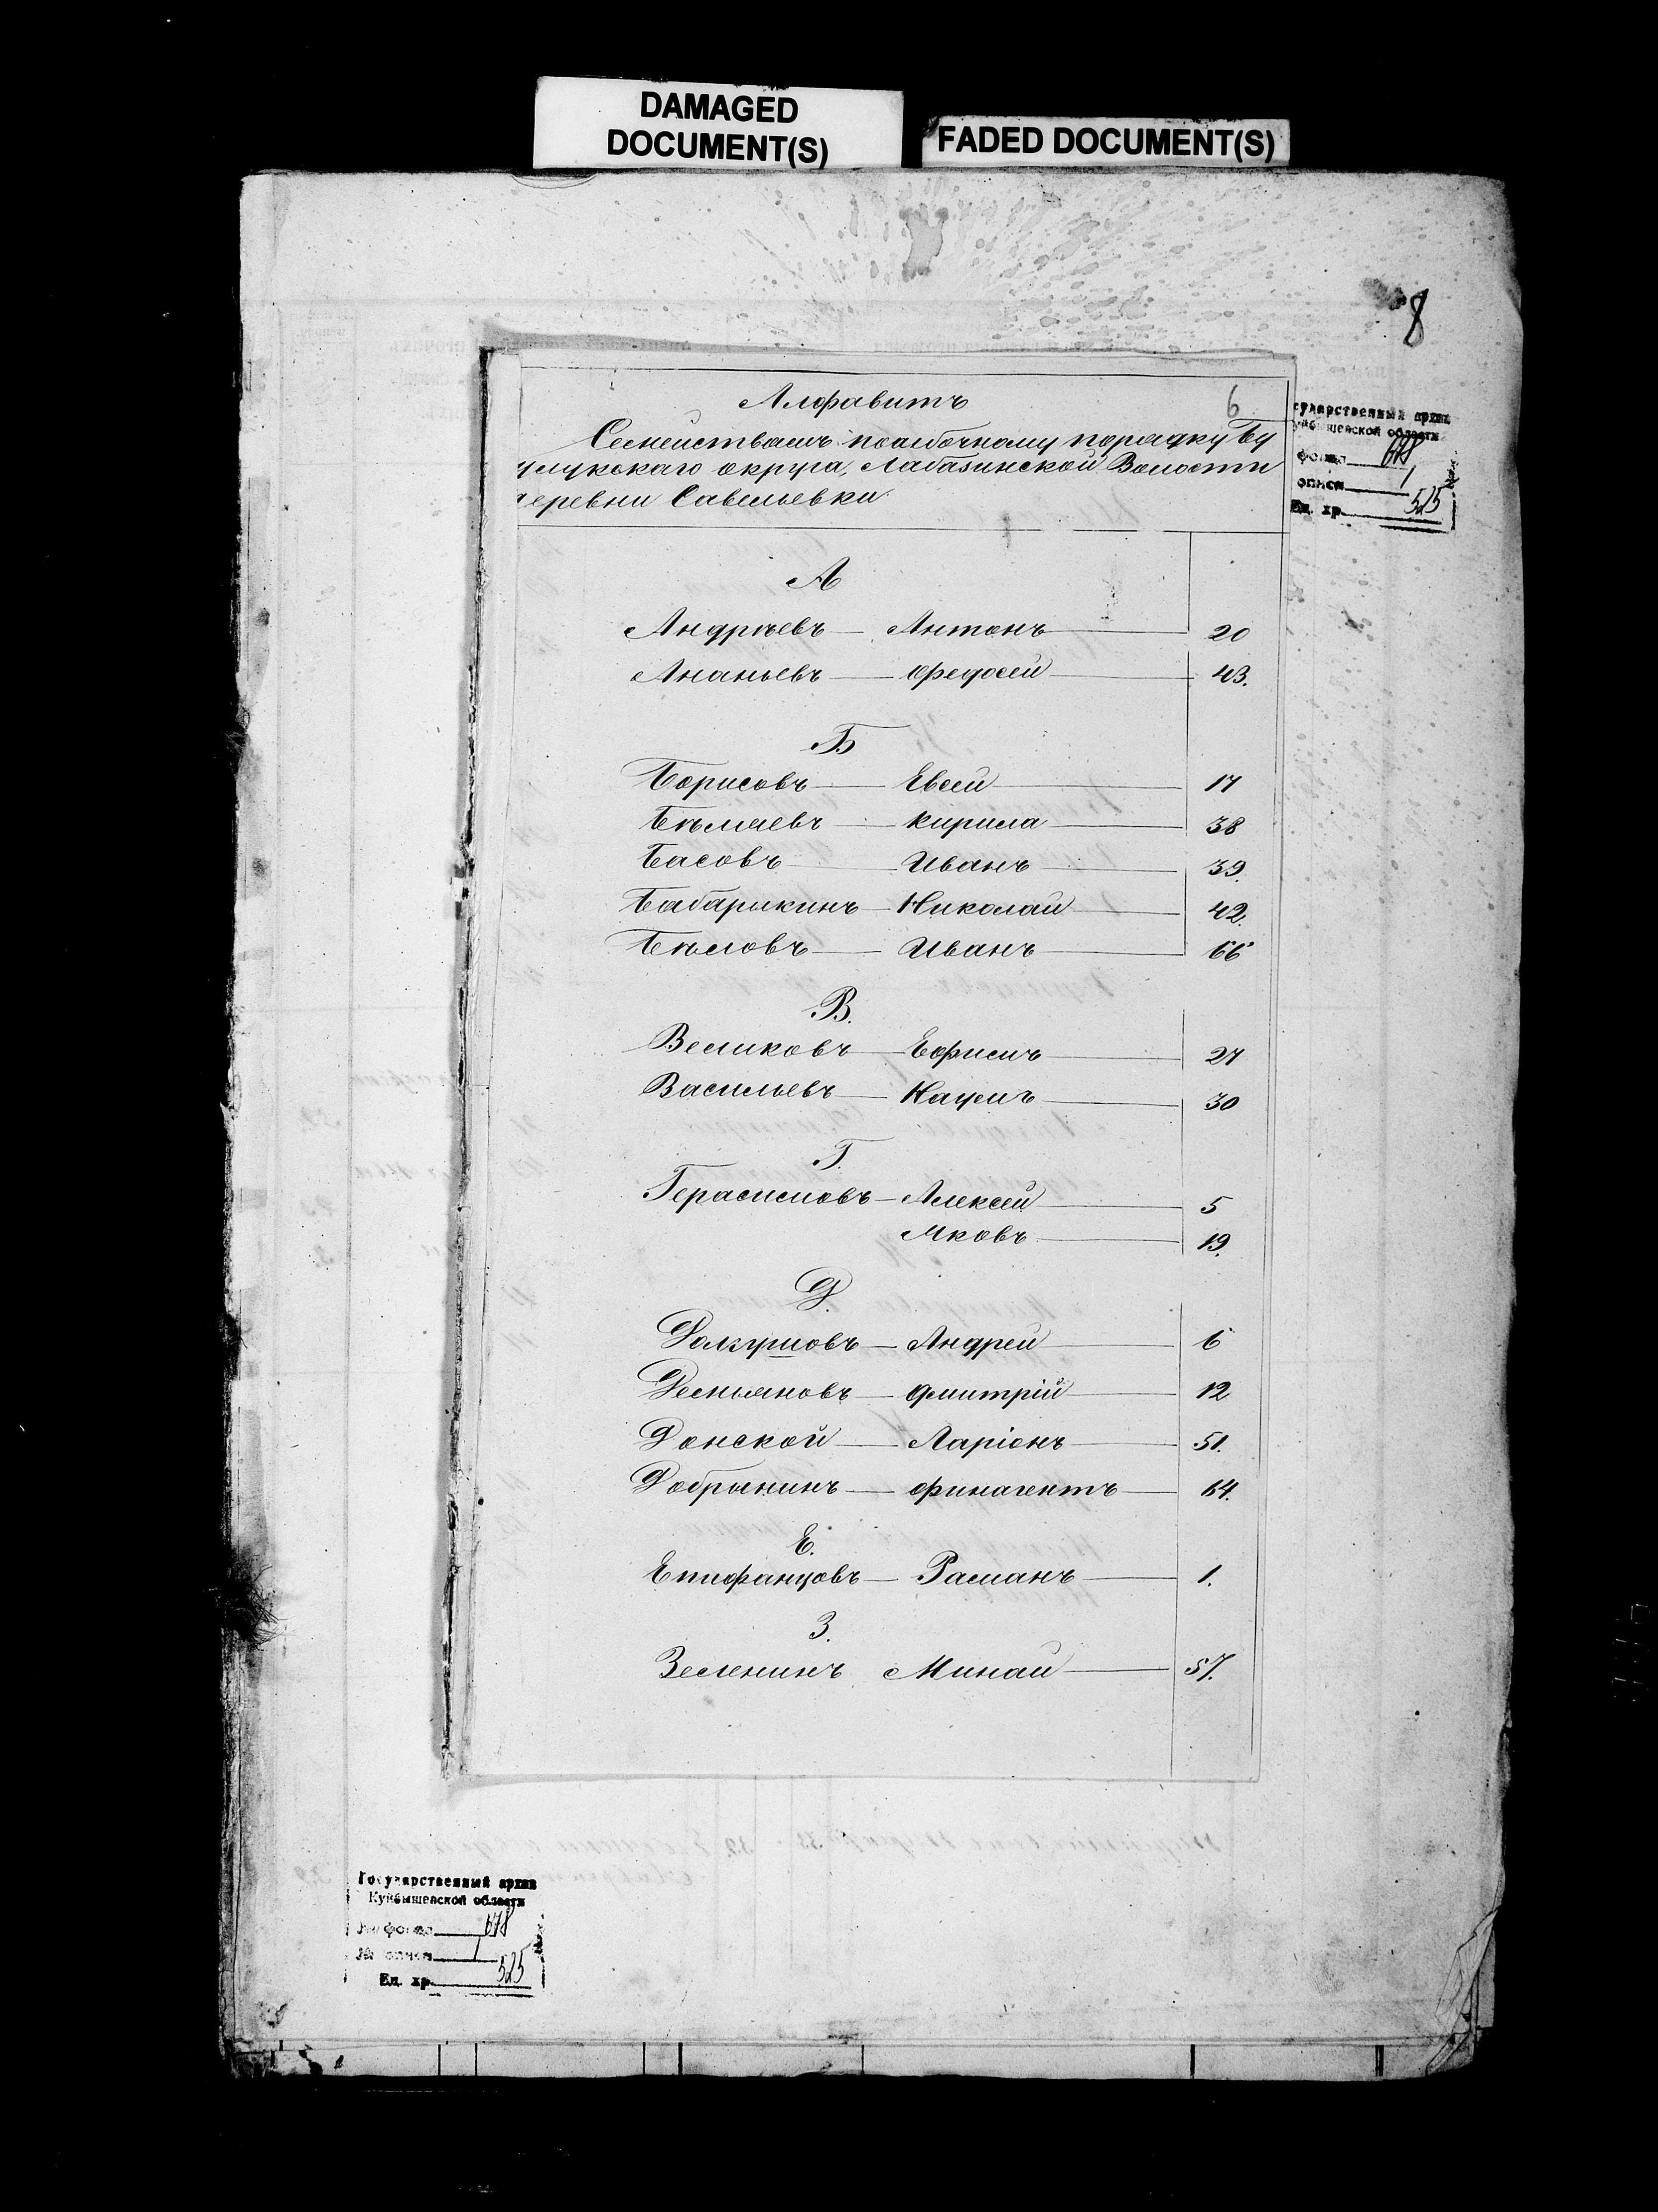 DAMAGED
DOCUMENT(S)
FADED DOCUMENT(S)
8
Алфавитъ
6
Семействамъ поалбочному порядку Бу
зулукскаго округа, Лабазинской Волости
деревни Савельевки
Государственный архив
Куйбышевской области
фонда 678
описи 1
Ед. хр. 525
А
Андрѣевъ — Антонъ — 20
Ананьевъ — Федосей — 43.
Б
Борисовъ — Евсей — 17
Бѣляевъ — Кирила — 38
Басовъ — Иванъ — 39.
Бабарыкинъ — Николай — 42.
Бѣловъ — Иванъ — 66
В.
Великовъ — Ефимъ — 27
Васильевъ — Наумъ — 30
Г.
Герасимовъ — Алексей — 5
Яковъ — 19.
Д.
Долгушовъ — Андрей — 6
Демьяновъ — Дмитрій — 12
Донской — Ларіонъ — 51.
Добрынинъ — Финагентъ — 64.
Е.
Епифанцовъ — Раманъ — 1.
З.
Зеленинъ Минай — 57.
Государственный архив
Куйбышевской области
№ фонда 678
№ описи 1
Ед. хр. 525